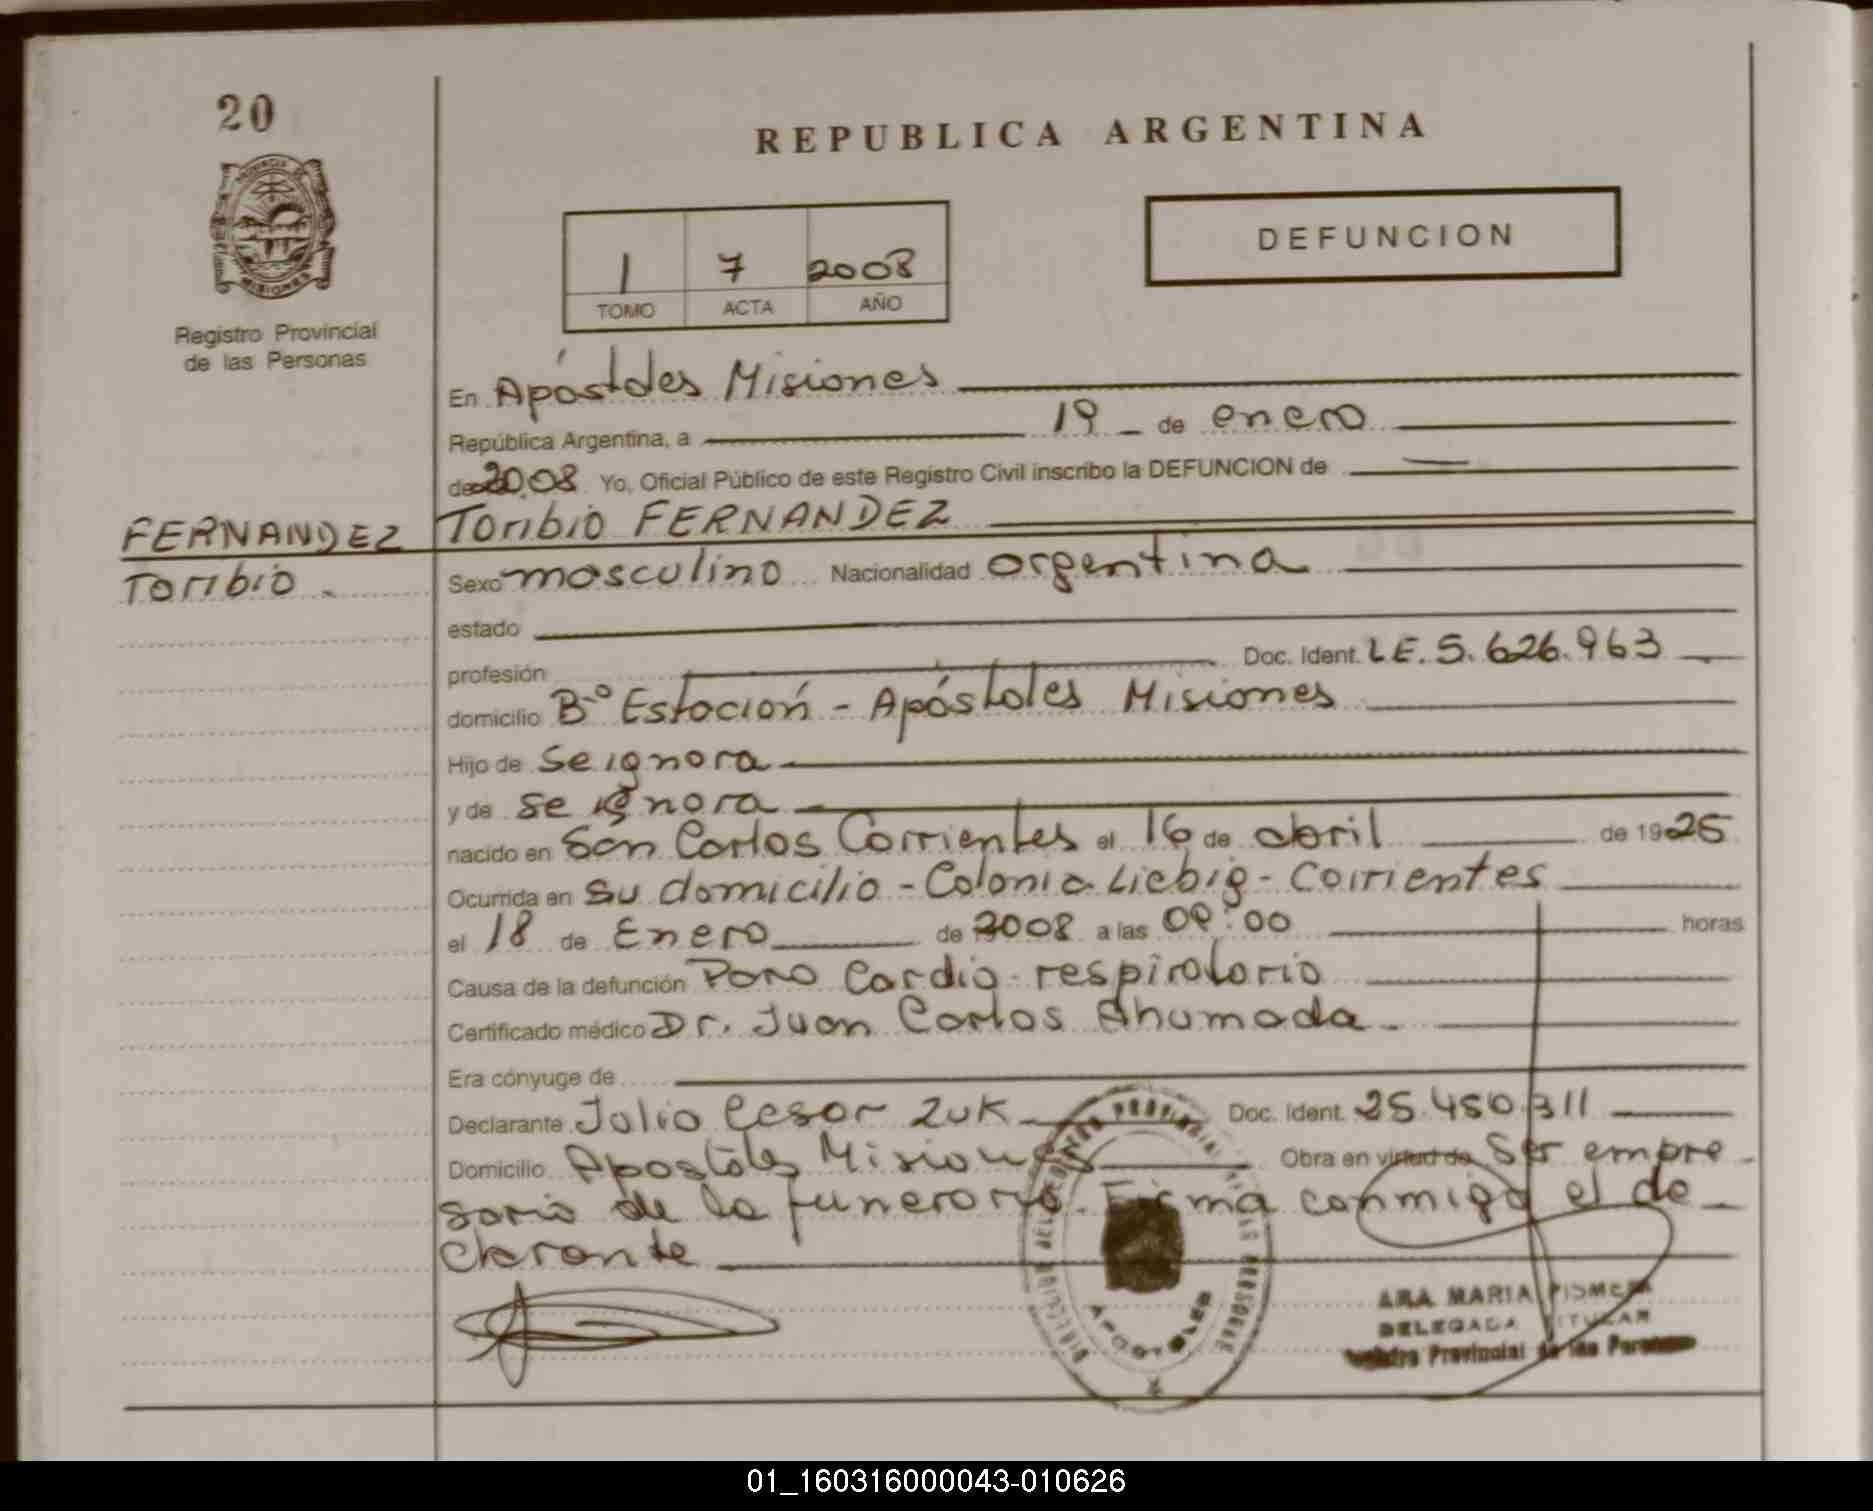 20
REPUBLICA ARGENTINA
DEFUNCION
1 7 2008
TOMO ACTA AÑO
PROVINCIA DE
MISIONES
Registro Provincial
de las Personas
En Apóstoles Misiones
República Argentina, a 19 de enero
de 2008 Yo, Oficial Público de este Registro Civil inscribo la DEFUNCION de
FERNANDEZ Toribio FERNANDEZ
Toribio. Sexo masculino Nacionalidad argentina
estado
profesión Doc. Ident. L.E. 5.626.963
domicilio B.º Estación - Apóstoles Misiones
Hijo de se ignora
y de se ignora
nacido en San Carlos Corrientes el 16 de abril de 1925
Ocurrida en su domicilio - Colonia Liebig - Corrientes
el 18 de Enero de 2008 a las 09:00 horas
Causa de la defunción Paro Cardio-respiratorio
Certificado médico Dr. Juan Carlos Ahumada.
Era cónyuge de
Declarante Julio Cesar ZUK Doc. Ident. 25.450.311
Domicilio Apostoles Misiones Obra en virtud de Ser empre-
sario de la funeraria. Firma conmigo el de-
clarante
APOSTOLES
ANA MARIA
DELEGADA TITULAR
Registro Provincial de las Personas
01_160316000043-010626